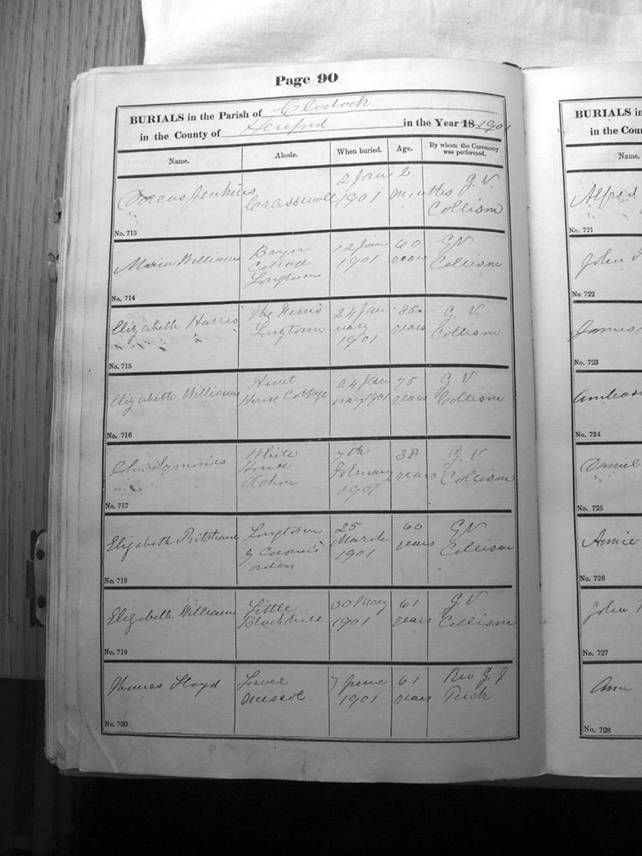 Page 90
BURIALS in the Parish of Clodock
in the County of Hereford in the Year 18 1901
Name. Abode. When buried. Age. By whom the Ceremony was performed.
Dorcas Jenkins Craswall 2 Jan 1901 2 months G. V. Collison
No. 713
Maria Williams Cottage Longtown 12 Jan 1901 60 years GV Collison
No. 714
Elizabeth Harris Longtown 24 January 1901 85 years G. V. Collison
No. 715
Elizabeth Williams House Cottage 24 January 1901 75 years G V Collison
No. 716
Symonds White House 7th February 1901 38 years G. V. Collison
No. 717
Elizabeth Longtown 25 March 1901 60 years GV Collison
No. 718
Elizabeth Williams Little Blackhill 30 May 1901 61 years G. V. Collison
No. 719
Thomas Lloyd Lower 7 June 1901 61 years Rev G. J.
No. 720
BURIALS in
in the Coun
Name.
Alfred
No. 721
John
No 722
James
No. 723
No. 724
Daniel
No. 725
Annie
No. 726
John
No. 727
Ann
No. 728